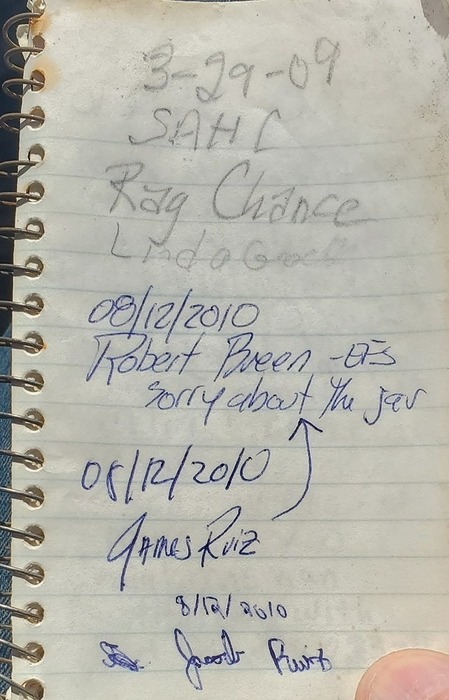 3-29-09
SAHC
Ray Chance
Linda
08/12/2010
Robert Breen -
Sorry about the jar
08/12/2010
James Ruiz
8/12/2010
Jacob